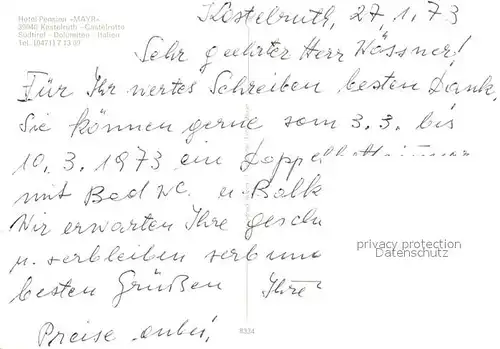 Hotel Pension »MAYR«
39040 Kastelruth - Castelrotto
Südtirol - Dolomiten - Italien
Tel. (0471) 7 13 09
Kastelruth, 27.1.73
Sehr geehrter Herr Wössner!
Für Ihr wertes Schreiben besten Dank,
Sie können gerne vom 3.3. bis
10.3.1973 ein Doppelbettzimmer
mit Bad WC. u. Balk
Wir erwarten Ihre gesch
u. verbleiben verbun
besten Grüßen Ihre
Preise anbei,
privacy protection
Datenschutz
8334